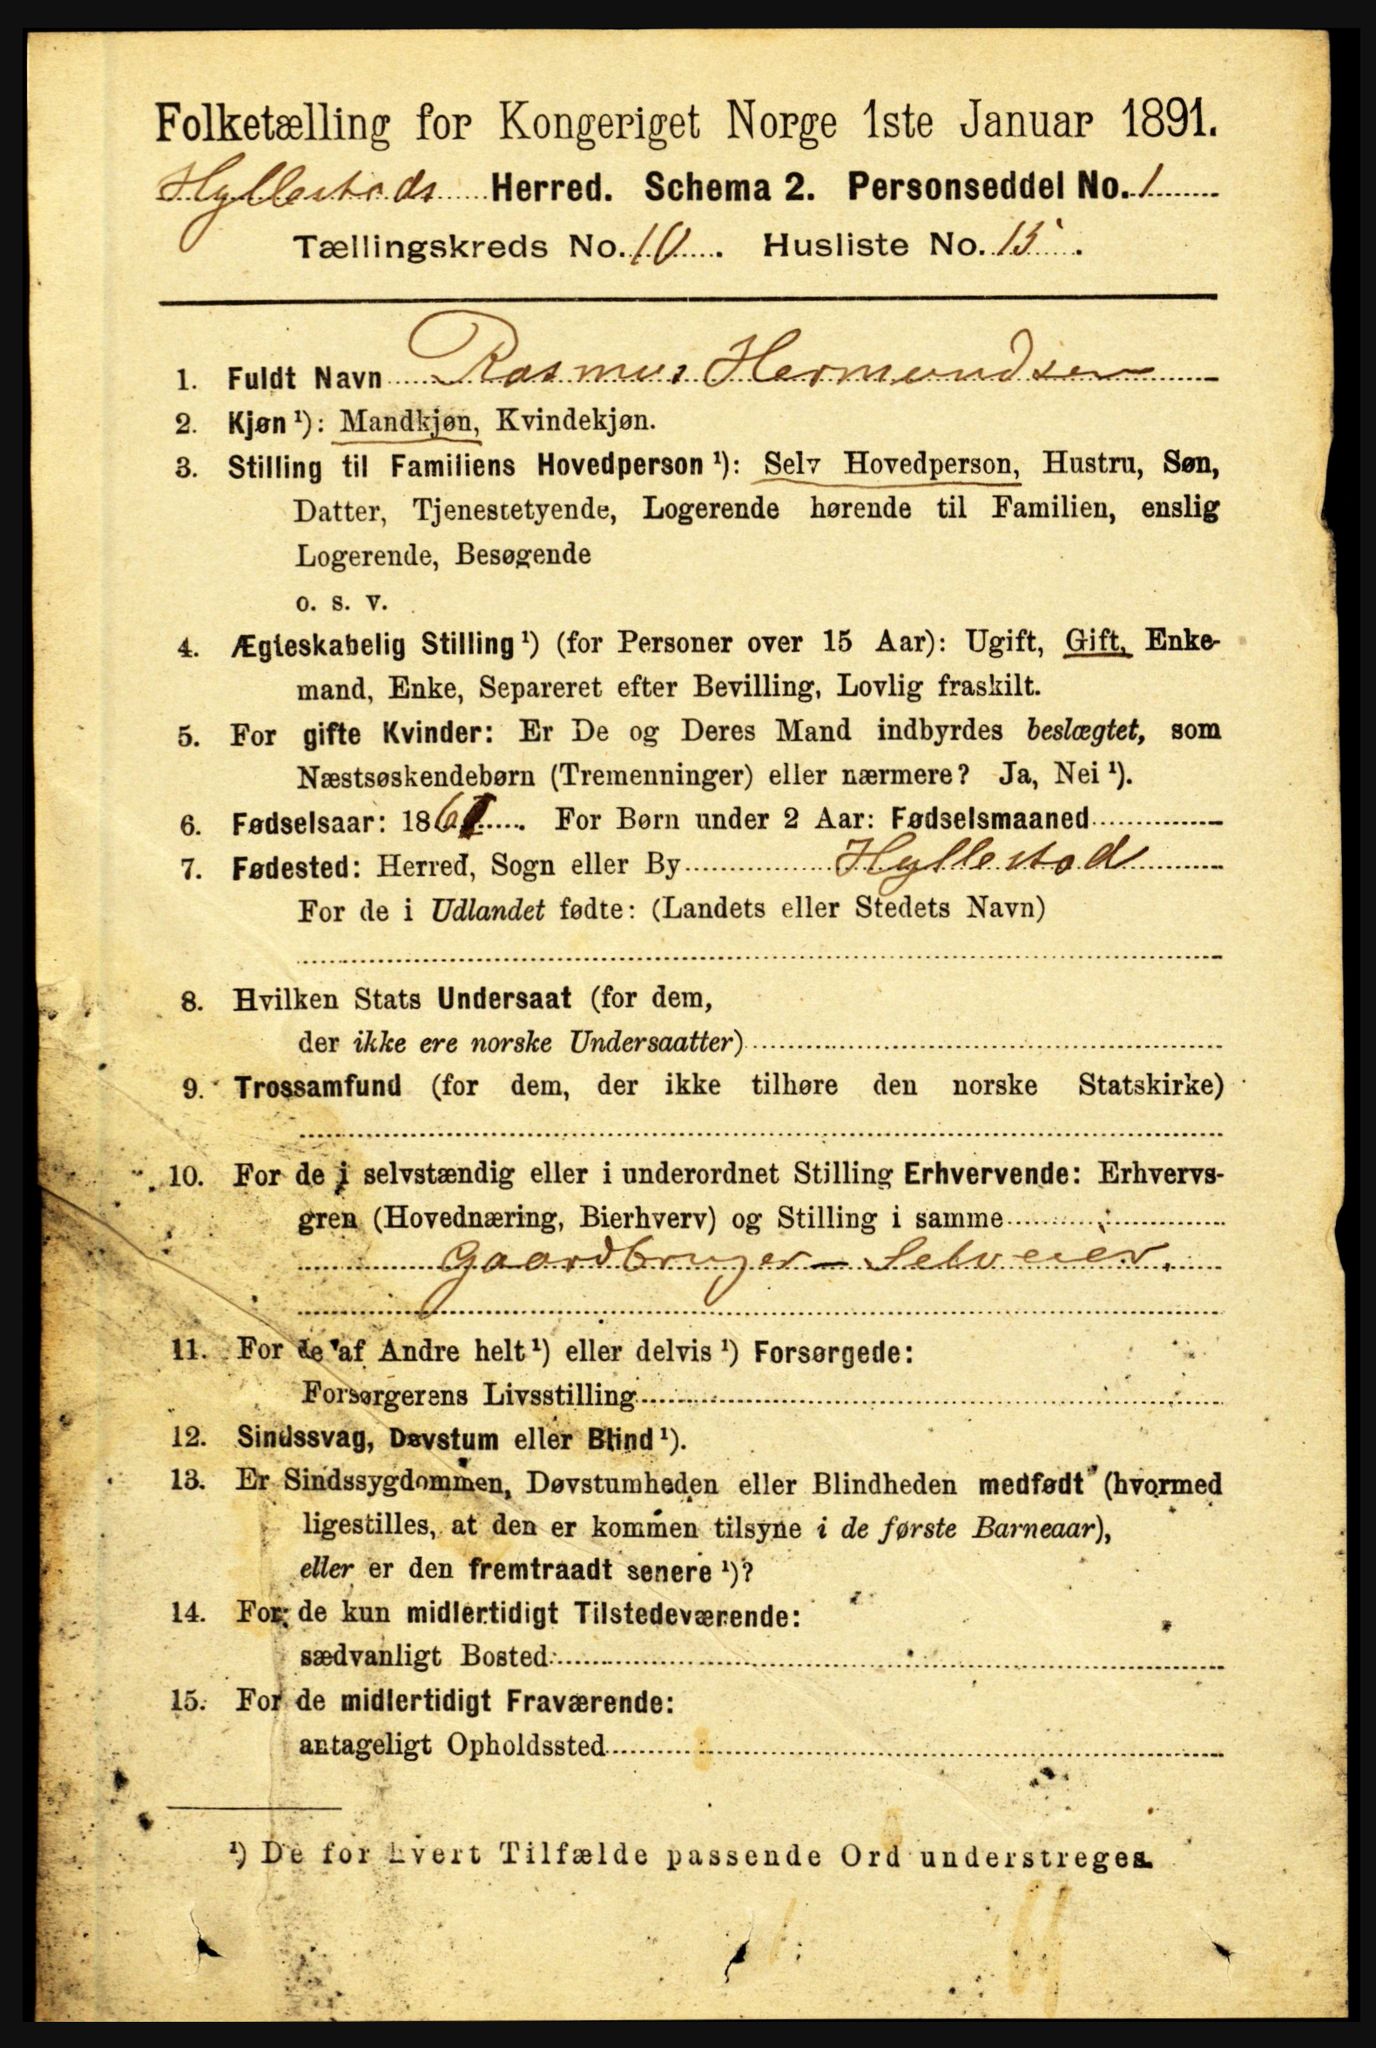 Folketælling for Kongeriget Norge 1ste Januar 1891.
Hyllestads Herred. Schema 2. Personseddel No. 1
Tællingskreds No. 10. Husliste No. 15.
1. Fuldt Navn Rasmus Hermundsen
2. Kjøn ¹): Mandkjøn, Kvindekjøn.
3. Stilling til Familiens Hovedperson ¹): Selv Hovedperson, Hustru, Søn,
Datter, Tjenestetyende, Logerende hørende til Familien, enslig
Logerende, Besøgende
o. s. v.
4. Ægteskabelig Stilling ¹) (for Personer over 15 Aar): Ugift, Gift, Enke-
mand, Enke, Separeret efter Bevilling, Lovlig fraskilt.
5. For gifte Kvinder: Er De og Deres Mand indbyrdes beslægtet, som
Næstsøskendebørn (Tremenninger) eller nærmere? Ja, Nei ¹).
6. Fødselsaar: 1861. For Børn under 2 Aar: Fødselsmaaned
7. Fødested: Herred, Sogn eller By Hyllestad
For de i Udlandet fødte: (Landets eller Stedets Navn)
8. Hvilken Stats Undersaat (for dem,
der ikke ere norske Undersaatter)
9. Trossamfund (for dem, der ikke tilhøre den norske Statskirke)
10. For de i selvstændig eller i underordnet Stilling Erhvervende: Erhvervs-
gren (Hovednæring, Bierhverv) og Stilling i samme
Gaardbruger – Selveier.
11. For de af Andre helt ¹) eller delvis ¹) Forsørgede:
Forsørgerens Livsstilling
12. Sindssvag, Døvstum eller Blind ¹).
13. Er Sindssygdommen, Døvstumheden eller Blindheden medfødt (hvormed
ligestilles, at den er kommen tilsyne i de første Barneaar),
eller er den fremtraadt senere ¹)?
14. For de kun midlertidigt Tilstedeværende:
sædvanligt Bosted
15. For de midlertidigt Fraværende:
antageligt Opholdssted
¹) De for hvert Tilfælde passende Ord understreges.